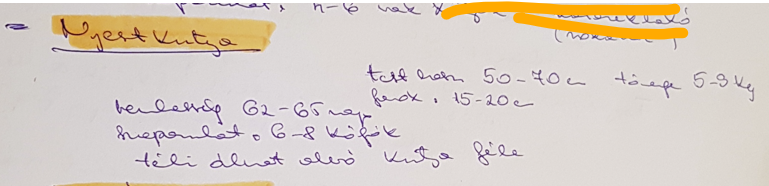 n-6 nak
- Nyestkutya
test hossz 50-70 cm tömege 5-9 kg
farok. 15-20 cm
vemhesség 62-65 nap
szaporulat. 6-8 kölyök
téli álmot alvó kutya féle